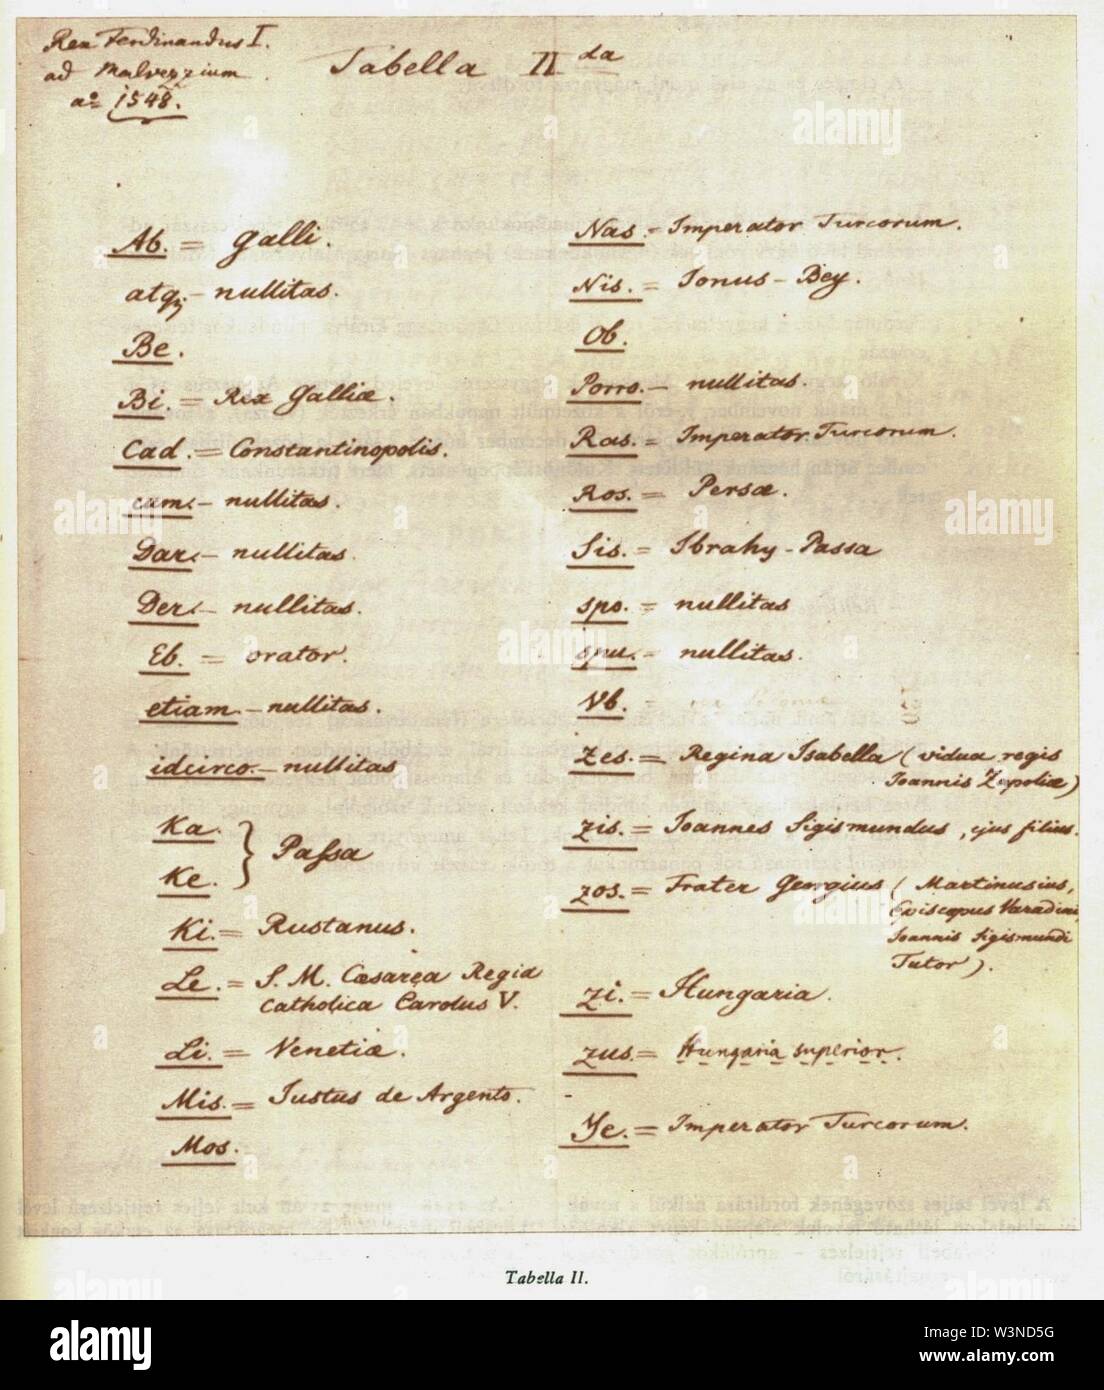 Rex Ferdinandus I.
ad Malvezzium
aº 1548.
Tabella II da
Ab. = Galli.
atqj – nullitas.
Be.
Bi. = Rex Galliæ.
Cad. = Constantinopolis.
cum. – nullitas.
Dar. – nullitas.
Der. – nullitas.
Eb. = orator.
etiam. – nullitas.
idcirco. – nullitas
Ka.
Ke. } Passa
Ki. = Rustanus.
Le. = S. M. Cæsarea Regia
Catholica Carolus V.
Li. = Venetiæ.
Mis. = Justus de Argento.
Mos.
Nas. = Imperator Turcorum.
Nis. = Jonus – Bey.
Ob.
Porro. – nullitas.
Ras. = Imperator Turcorum.
Ros. = Persæ.
Sis. = Ibrahy – Passa
spo. = nullitas
spu. = nullitas.
Vb. =
Zes. = Regina Isabella (vidua regis
Joannis Zapoliæ)
zis. = Joannes Sigismundus, ejus filius.
zos. = Frater Georgius (Martinusius,
Episcopus Varadini
Joannis Sigismundi
Tutor).
zi. = Hungaria.
zus. = Hungaria superior.
Ye. = Imperator Turcorum.
Tabella II.
alamy
Image ID: W3ND5G
www.alamy.com